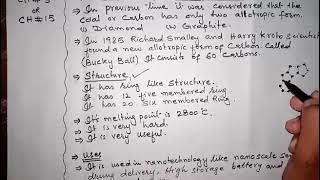 of
CH#15
⇒ In previous time it was considered that the
Coal or Carbon has only two allotropic form.
(i) Diamond (ii) Graphite.
⇒ In 1985 Richard Smalley and Harry Kroto Scientist
found a new allotropic form of Carbon. Called
(Bucky Ball) It consists of 60 Carbons.
⇒ Structure
It has ring like Structure.
It has 12 five membered ring
It has 20 Six membered Ring.
⇒ It's melting point is 2800°C.
⇒ It is very hard.
⇒ It is very useful.
⇒ Uses
⇒ It is used in nanotechnology like nanoscale
drug delivery, High storage battery and